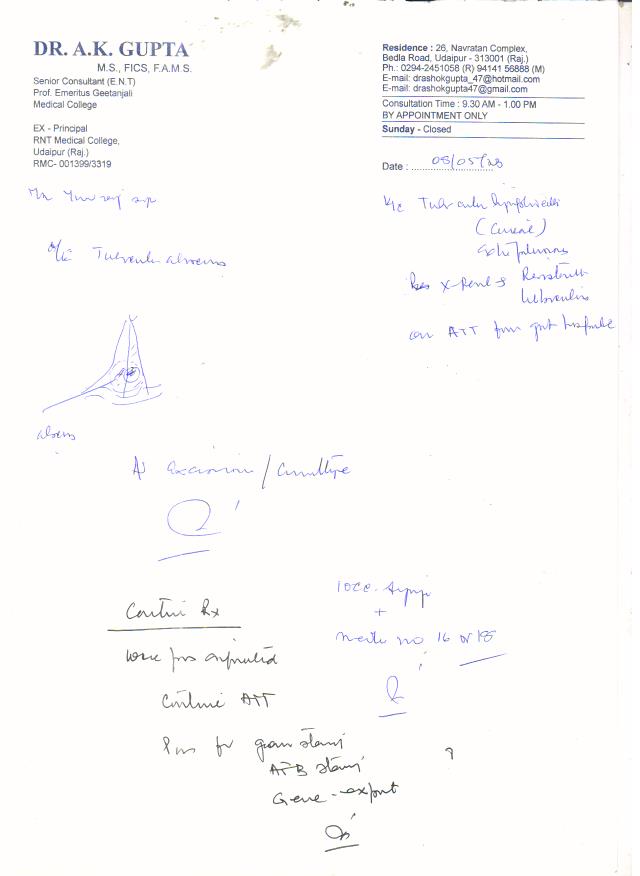 DR. A.K. GUPTA
M.S., FICS, F.A.M.S.
Senior Consultant (E.N.T)
Prof. Emeritus Geetanjali
Medical College
EX - Principal
RNT Medical College,
Udaipur (Raj.)
RMC- 001399/3319
Residence : 26, Navratan Complex,
Bedla Road, Udaipur - 313001 (Raj.)
Ph.: 0294-2451058 (R) 94141 56888 (M)
E-mail: drashokgupta_47@hotmail.com
E-mail: drashokgupta47@gmail.com
Consultation Time : 9.30 AM - 1.00 PM
BY APPOINTMENT ONLY
Sunday - Closed
Date : 08/05/23
K/c Tubercular
(Cervical)
X-Pert
on ATT from govt hospital
Tubercular abscess
abscess
Excision /
10cc. Syringe
+
needle no 16 or 18
Continue Rx
Continue ATT
Pus for gram stain
AFB stain
Gene-expert